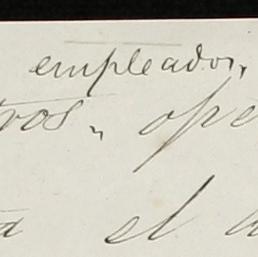 empleador,
ros„ ope
a el a